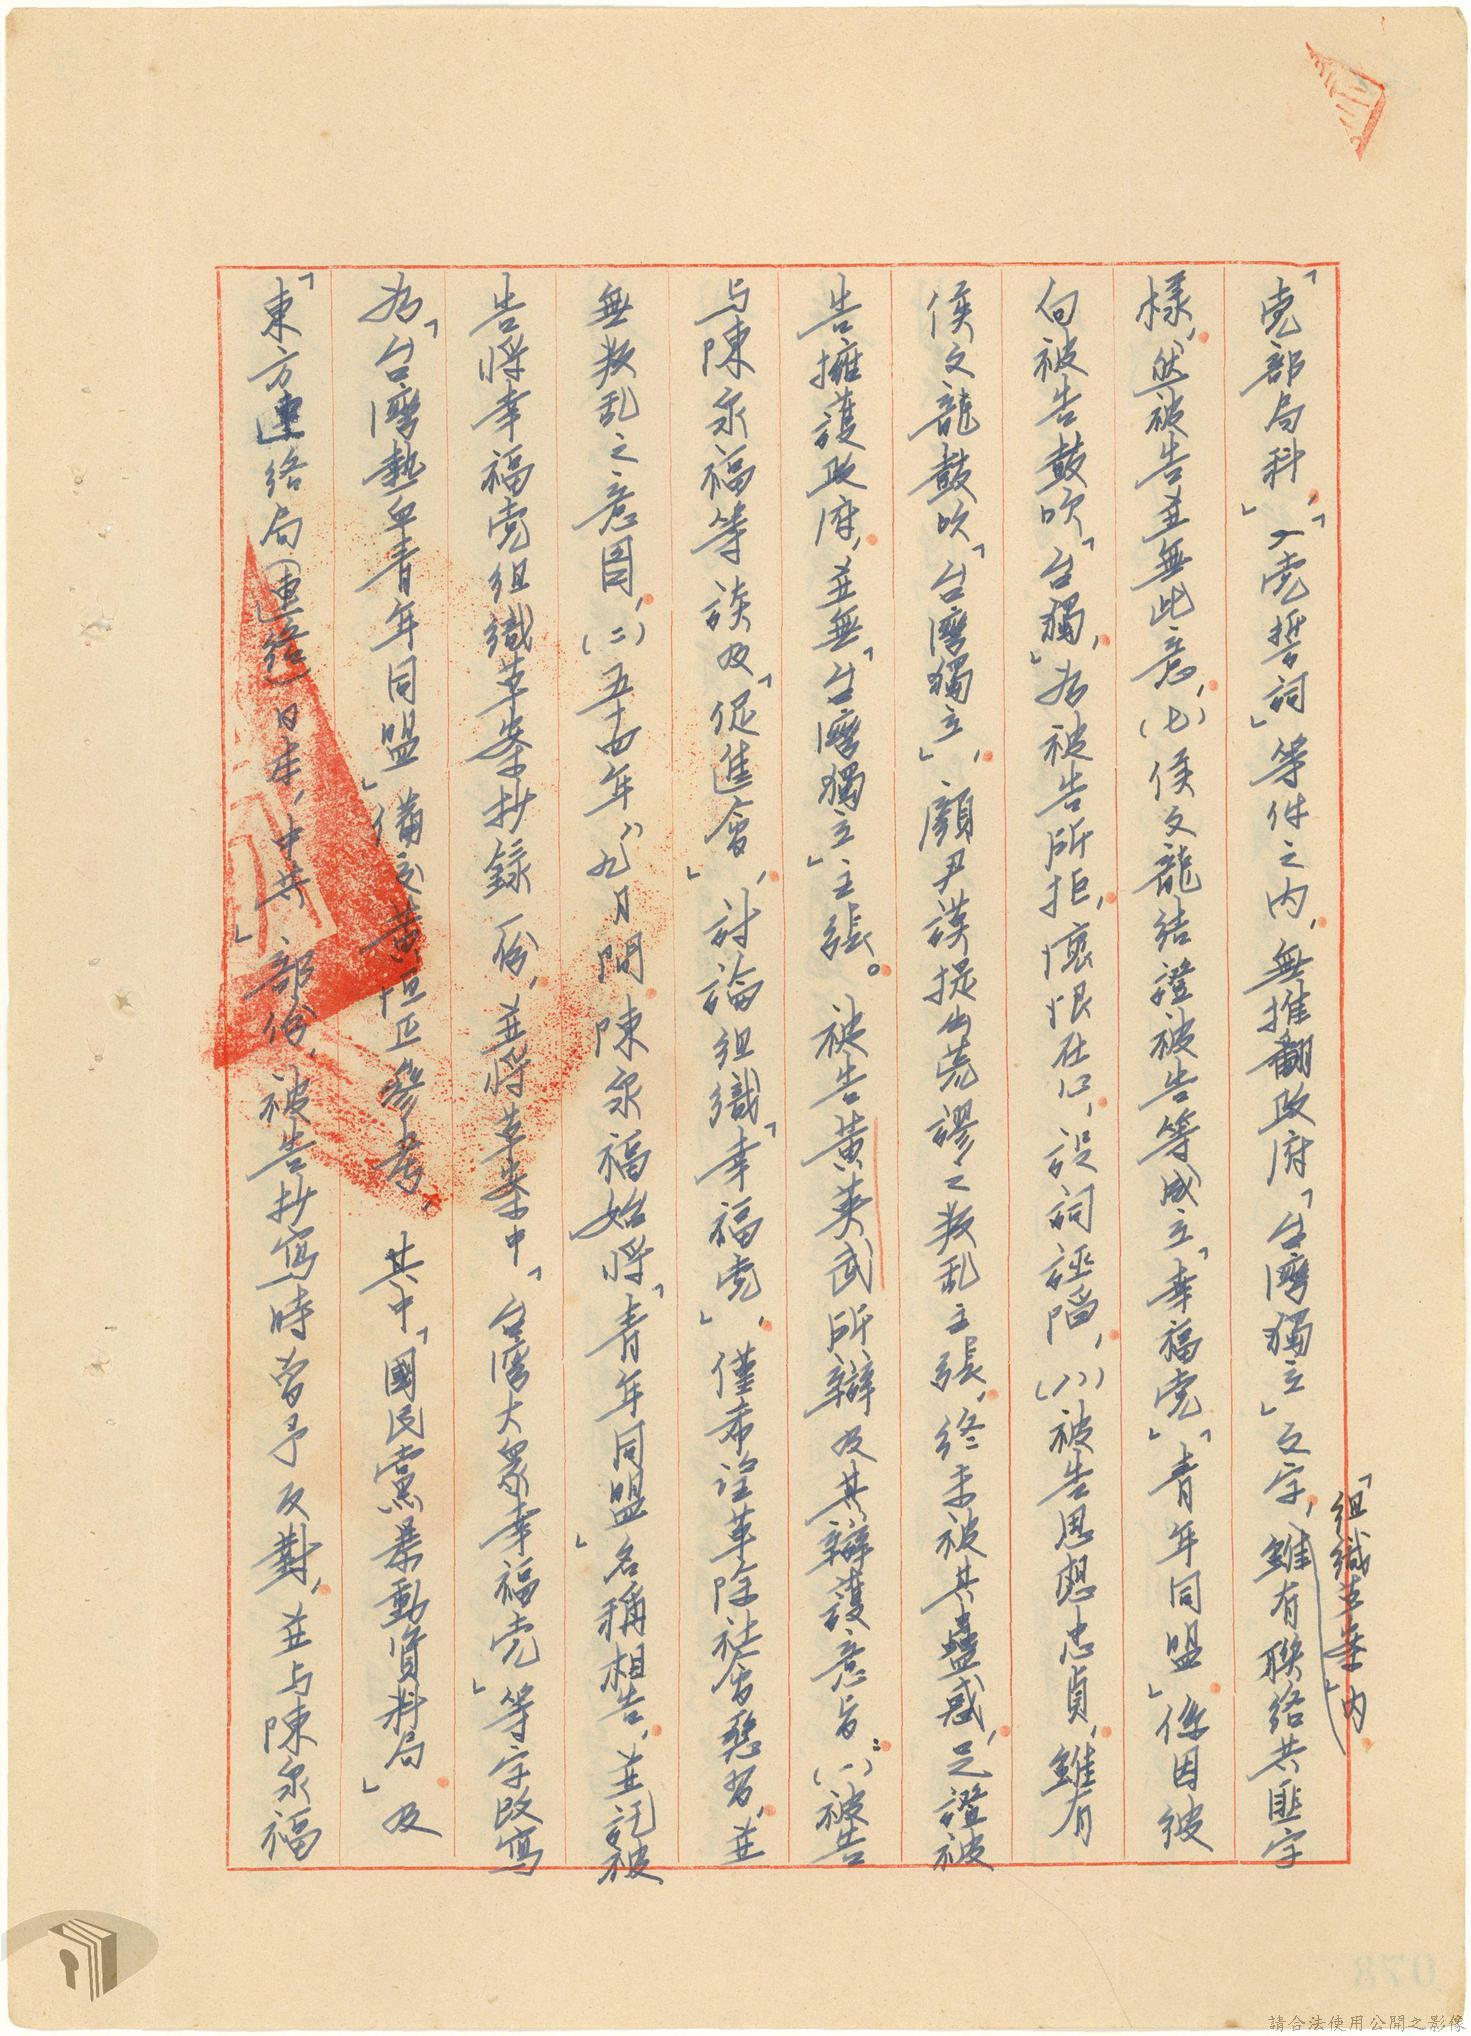 「党部局科」,「入党誓詞」等件之內,無推翻政府「台灣獨立」文字,雖有联络共匪字
「組織草案」內
樣,然被告並無此意,(七)侯文龍结證被告等成立「幸福党」「青年同盟」係因彼
向被告鼓吹「台獨」,为被告所拒,懷恨在心,設詞誣陷,(八)被告思想忠貞,雖有
侯文龍鼓吹「台灣獨立」,顏尹謨提出荒謬之叛乱主張,终未被其蠱惑,足證被
告擁護政府,並無「台灣獨立」主張。被告黄英武所辯及其辯護意旨:(一)被告
与陳永福等談及「促進會」,討論组織「幸福党」,僅希望革除社会惡習,並
無叛乱之意圖,(二)五十四年八、九月間陳永福始將「青年同盟」名稱相告,並託被
告將幸福党组織草案抄錄一份,並將草案中「台灣大眾幸福党」等字改寫
为「台灣熱血青年同盟」備交黄恒正參考,其中「國民黨暴動資料局」及
「東方連络局(連络)日本,中共」部份,被告抄寫時曾予反對,並与陳永福
078
請合法使用公開之影像